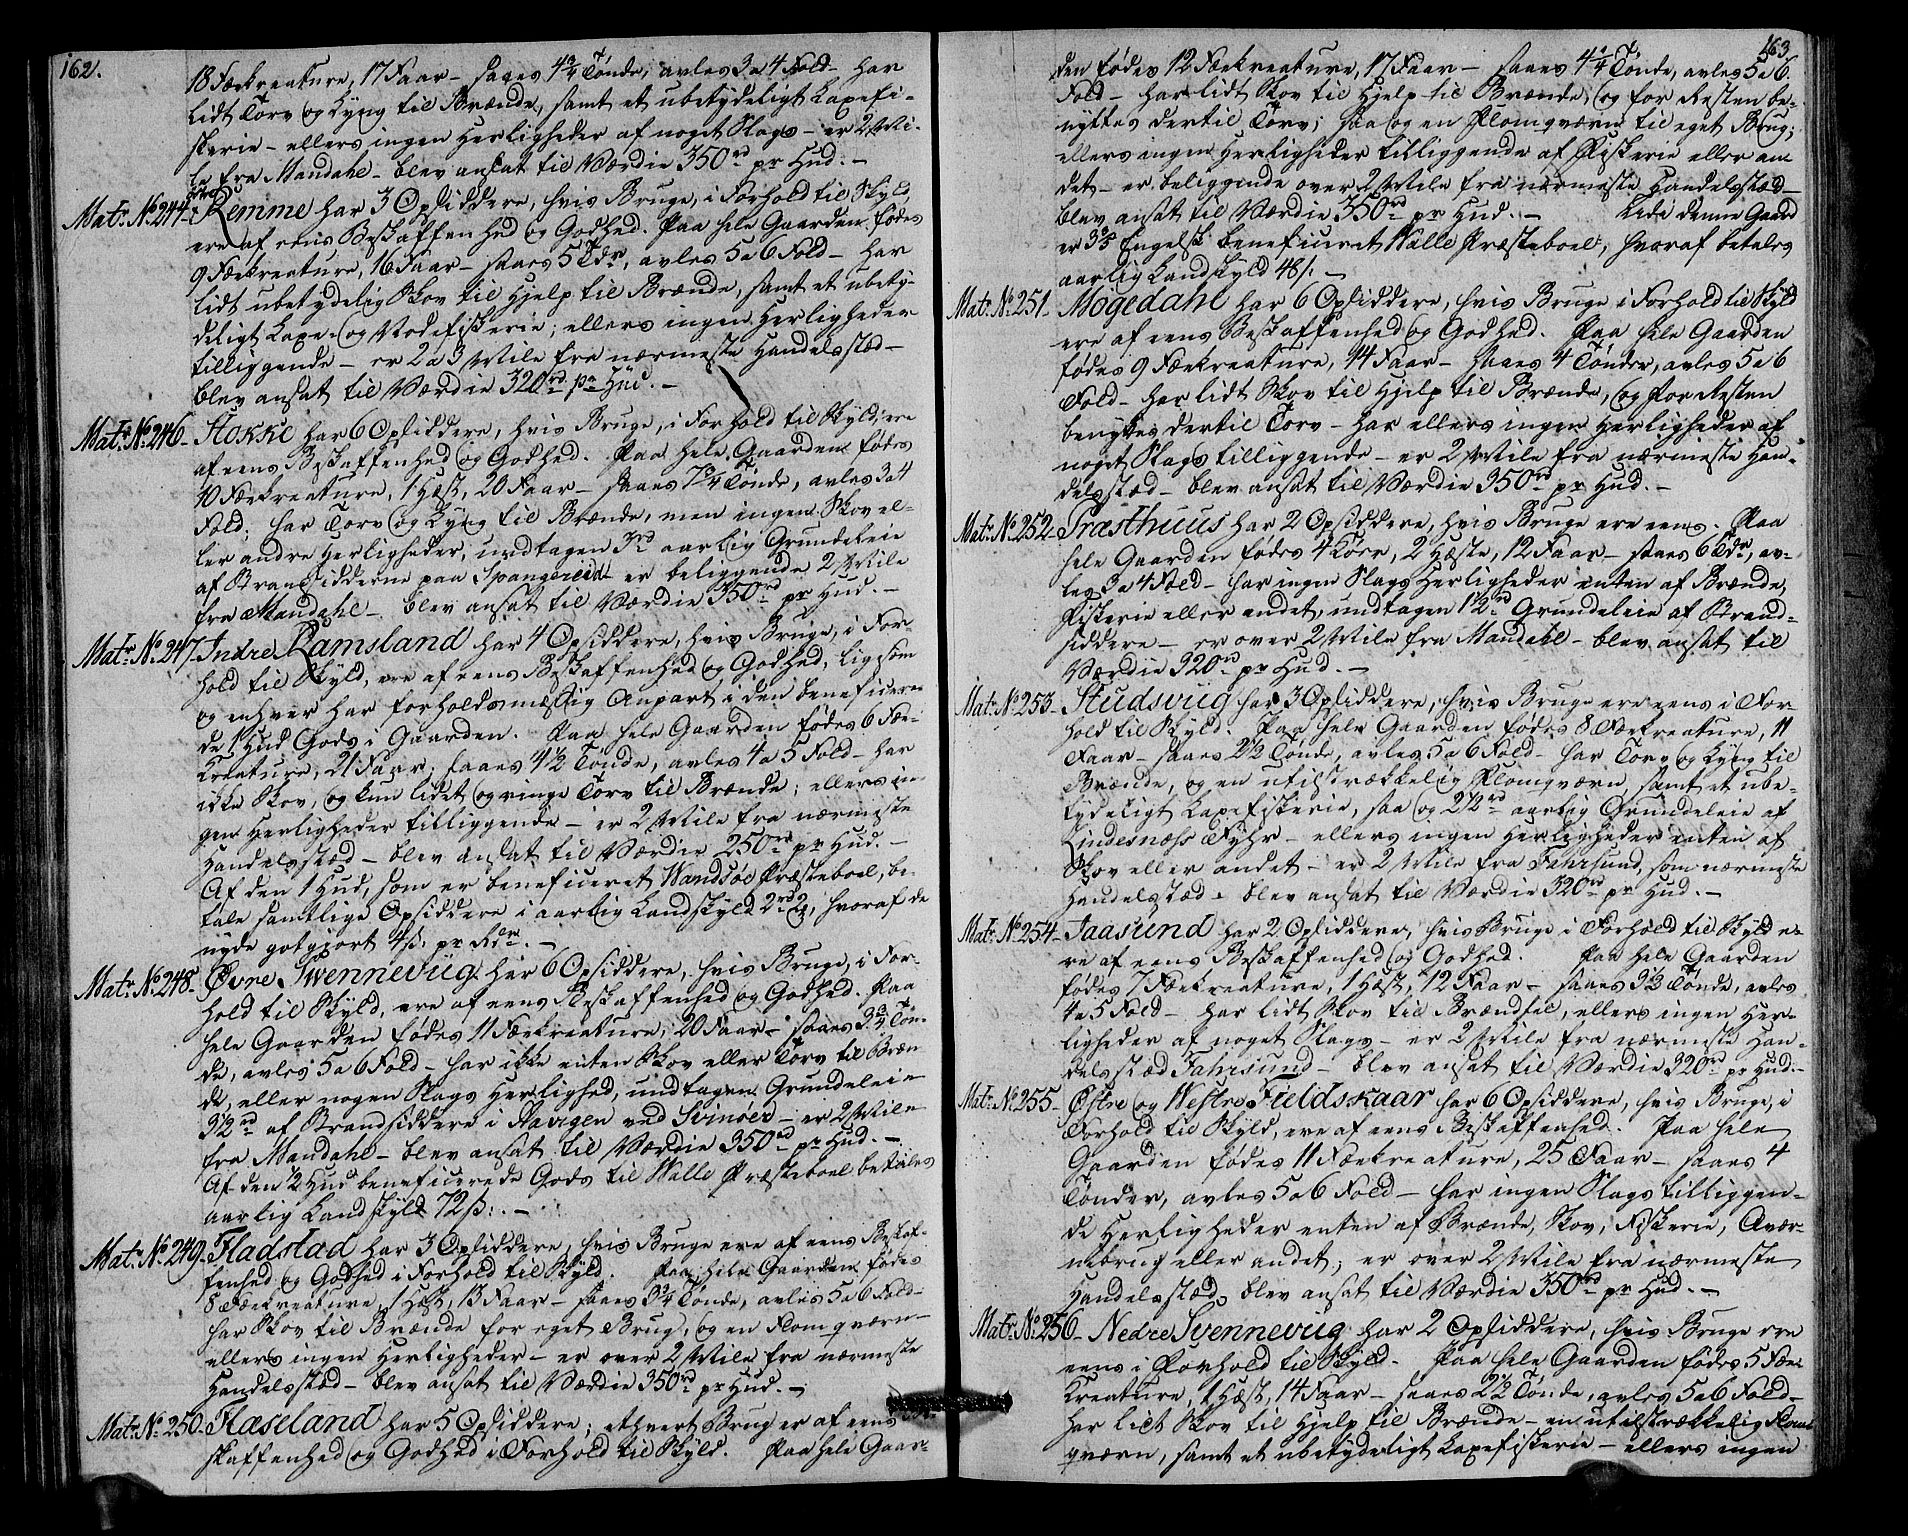 162.
18 Fækreature, 17 Faar – saaes 4 3/4 Tønde, avles 3 a 4 Fold – har
lidt Torv og Lyng til Brænde, samt et ubetydeligt Laxefi-
skerie – ellers ingen Herligheder af noget Slags – er 2 Mi-
le fra Mandahl – blev ansat til Værdie 350 rd pr Hud. –
Mat: No: 244 – Remme har 3 Opsiddere, hvis Bruge, i Forhold til Skyld,
ere af eens Beskaffenhed og Godhed. Paa hele Gaarden fødes
9 Fækreature, 16 Faar – saaes 5 Tdr, avles 5 a 6 Fold – har
lidt ubetydelig Skov til Hjelp til Brænde, samt et ubety-
deligt Laxe- og Nodefiskerie; ellers ingen Herligheder
tilliggende – er 2 a 3 Mile fra nærmeste Handelsstæd –
blev ansat til Værdie 320 rd pr Hud. –
Mat: No: 246 – Stokke har 6 Opsiddere, hvis Bruge, i Forhold til Skyld, ere
af eens Beskaffenhed og Godhed. Paa hele Gaarden fødes
10 Fækreature, 1 Hæst, 20 Faar – saaes 7 3/4 Tønde, avles 3 a 4
Fold; har Torv og Lyng til Brænde, men ingen Skov el-
ler andre Herligheder, undtagen 3 rd aarlig Grundeleie
af Strandsidderne paa Spangereid – er beliggende 2 Mile
fra Mandahl – blev ansat til Værdie 350 rd pr Hud. –
Mat: No: 247 Indre Ramsland har 4 Opsiddere, hvis Bruge, i For-
hold til Skyld, ere af eens Beskaffenhed og Godhed, ligesom
og enhver har forholdsmæssig Anpart i den beneficere-
de 1 Hud Gods i Gaarden. Paa hele Gaarden fødes 6 Fæ-
kreature, 21 Faar; saaes 4 1/2 Tønde, avles 4 a 5 Fold – har
ikke Skov, og kun lidet og ringe Torv til Brænde; ellers in-
gen Herligheder tilliggende – er 2 Mile fra nærmeste
Handelsstæd – blev ansat til Værdie 250 rd pr Hud. –
Af den 1 Hud, som er beneficeret Wandsøe Præsteboel, be-
tale samtlige Opsiddere i aarlig Landskyld 2 rd , hvoraf de
nyde gotgjort 4 ß: pr Rdr. –
Mat: No: 248 – Øvre Svennevüg har 6 Opsiddere, hvis Bruge, i For-
hold til Skyld, ere af eens Beskaffenhed og Godhed. Paa
hele Gaarden fødes 11 Fækreature, 20 Faar – saaes 3 3/4 Tøn-
de, avles 5 a 6 Fold – har ikke enten Skov eller Torv til Bræn
de, eller nogen Slags Herlighed, undtagen Grundeleie
3 1/2 rd af Strandsiddere i Havigen ved Svinöer – er 2 Mile
fra Mandahl – blev ansat til Værdie 350 rd pr Hud. –
Af den 1/2 Hud beneficerede Gods til Walle Præsteboel betales
aarlig Landskyld 72 ß. –
Mat: No: 249 – Fladstad har 3 Opsiddere, hvis Bruge ere af eens Beskaf-
fenhed og Godhed i Forhold til Skyld. Paa hele Gaarden fødes
8 Fækreature, 1 Hæst, 13 Faar – saaes 3 3/4 Tønde, avles 5 a 6 Fold –
har Skov til Brænde for eget Brug, og en Flomqværn –
ellers ingen Herligheder – er over 2 Mile fra nærmeste
Handelsstæd – blev ansat til Værdie 350 rd pr Hud. –
Mat: No: 250 – Flaseland har 5 Opsiddere; ethvert Brug er af eens Be-
skaffenhed og Godhed i Forhold til Skyld. Paa hele Gaar-
163.
den fødes 12 Fækreature, 17 Faar – saaes 4 1/4 Tønde, avles 5 a 6
Fold – har lidt Skov til Hjelp til Brænde, og for Resten be-
nyttes dertil Torv; saa og en Flomqværn til eget Brug;
ellers ingen Herligheder tilliggende af Fiskerie eller an
det – er beliggende over 2 Mile fra nærmeste Handelsstæd –
blev ansat til Værdie 350 rd pr Hud. – Udi denne Gaard
er 3 3/5 Engelsk beneficeret Walle Præsteboel, hvoraf betales
aarlig Landskyld 48 ß. –
Mat: No: 251 – Møgedahl har 6 Opsiddere, hvis Bruge i Forhold til Skyld
ere af eens Beskaffenhed og Godhed. Paa hele Gaarden
fødes 9 Fækreature, 14 Faar – saaes 4 Tønder, avles 5 a 6
Fold – har lidt Skov til Hjelp til Brænde, og for Resten
benyttes dertil Torv – har ellers ingen Herligheder af
noget Slags tilliggende – er 2 Mile fra nærmeste Han-
delsstæd – blev ansat til Værdie 350 rd pr Hud. –
Mat: No: 252 – Præsthuus har 2 Opsiddere, hvis Bruge ere eens. Paa
hele Gaarden fødes 4 Köer, 2 Hæste, 12 Faar – saaes 6 Tdr, av-
les 3 a 4 Fold – har ingen Slags Herligheder enten af Brænde,
Fiskerie eller andet, undtagen 1 1/2 rd Grundeleie af Strand-
siddere – er over 2 Mile fra Mandahl – blev ansat til
Værdie 320 rd pr Hud. –
Mat: No: 253 – Studsvug har 3 Opsiddere, hvis Bruge ere eens i For-
hold til Skyld. Paa hele Gaarden fødes 8 Fækreature, 11
Faar – saaes 2 1/2 Tønde, avles 5 a 6 Fold – har Torv og Lyng til
Brænde, og en utilstrækkelig Flomqværn, samt et ube-
tydeligt Laxefiskerie, saa og 2 1/2 rd aarlig Grundeleie af
Lindesnæss Fyhr – ellers ingen Herligheder enten af
Skov eller andet – er 2 Mile fra Fahrsund, som nærmeste
Handelsstæd – blev ansat til Værdie 320 rd pr Hud. –
Mat: No: 254 – Jaasund har 2 Opsiddere, hvis Bruge i Forhold til Skyld e-
re af eens Beskaffenhed og Godhed. Paa hele Gaarden
fødes 7 Fækreature, 1 Hæst, 12 Faar – saaes 3 1/2 Tønde, avles
4 a 5 Fold – har lidt Skov til Brændsel, ellers ingen Her-
ligheder af noget Slags – er 2 Mile fra nærmeste Han-
delsstæd Fahrsund – blev ansat til Værdie 320 rd pr Hud. –
Mat: No: 255 – Østre og Westre Fieldskaar har 6 Opsiddere, hvis Bruge, i
Forhold til Skyld, ere af eens Beskaffenhed. Paa hele
Gaarden fødes 11 Fækreature, 25 Faar – saaes 4
Tønder, avles 5 a 6 Fold – har ingen Slags tilliggen-
de Herligheder enten af Brænde, Skov, Fiskerie, Qvær-
nebrug eller andet; er over 2 Mile fra nærmeste
Handelsstæd – blev ansat til Værdie 350 rd pr Hud. –
Mat: No: 256 – Nedre Svennevug har 2 Opsiddere, hvis Bruge ere
eens i Forhold til Skyld. Paa hele Gaarden fødes 5 Fæ-
kreature, 1 Hæst, 14 Faar – saaes 2 1/2 Tønde, avles 5 a 6 Fold –
har lidt Skov til Hjelp til Brænde – en utilstrækkelig Flom
qværn, samt et ubetydeligt Laxefiskerie – ellers ingen